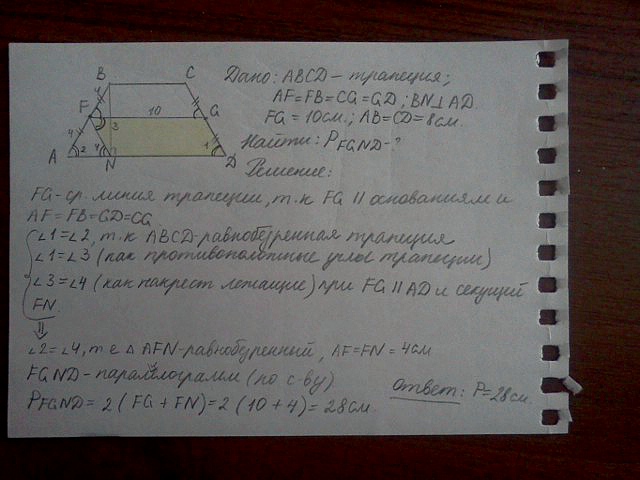 B C
Дано: ABCD - трапеция;
AF=FB=CG=GD; BN⊥AD.
F 10 G
FG = 10см.; AB=CD=8см.
4 3
Найти: PFGND - ?
A 2 4 N 1 D
Решение:
FG - ср. линия трапеции, т.к FG || основаниям и
AF = FB = GD = CG
∠1=∠2, т.к ABCD-равнобедренная трапеция
∠1=∠3 (как противоположные углы трапеции)
∠3=∠4 (как накрест лежащие) при FG || AD и секущей
FN.
⇓
∠2=∠4, т е △ AFN-равнобедренный, AF=FN = 4см
FGND - параллелограмм (по с-ву)
PFGND = 2 ( FG + FN) = 2 (10 + 4) = 28см.
ответ: P=28см.